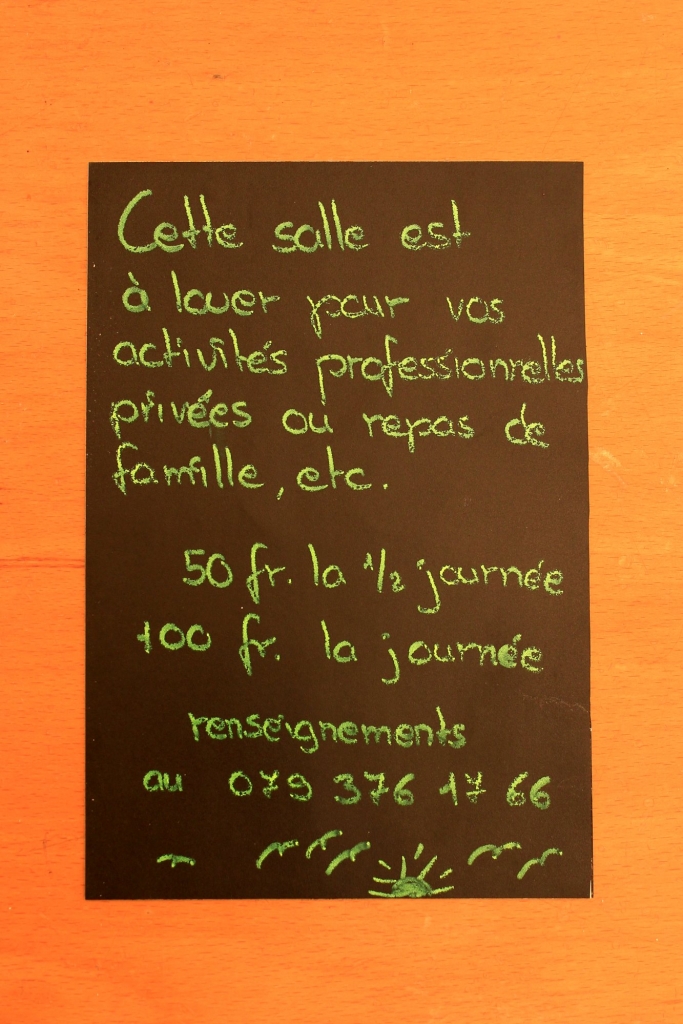 Cette salle est
à louer pour vos
activités professionnelles
privées ou repas de
famille, etc.
50 fr. la 1/2 journée
100 fr. la journée
renseignements
au 079 376 17 66